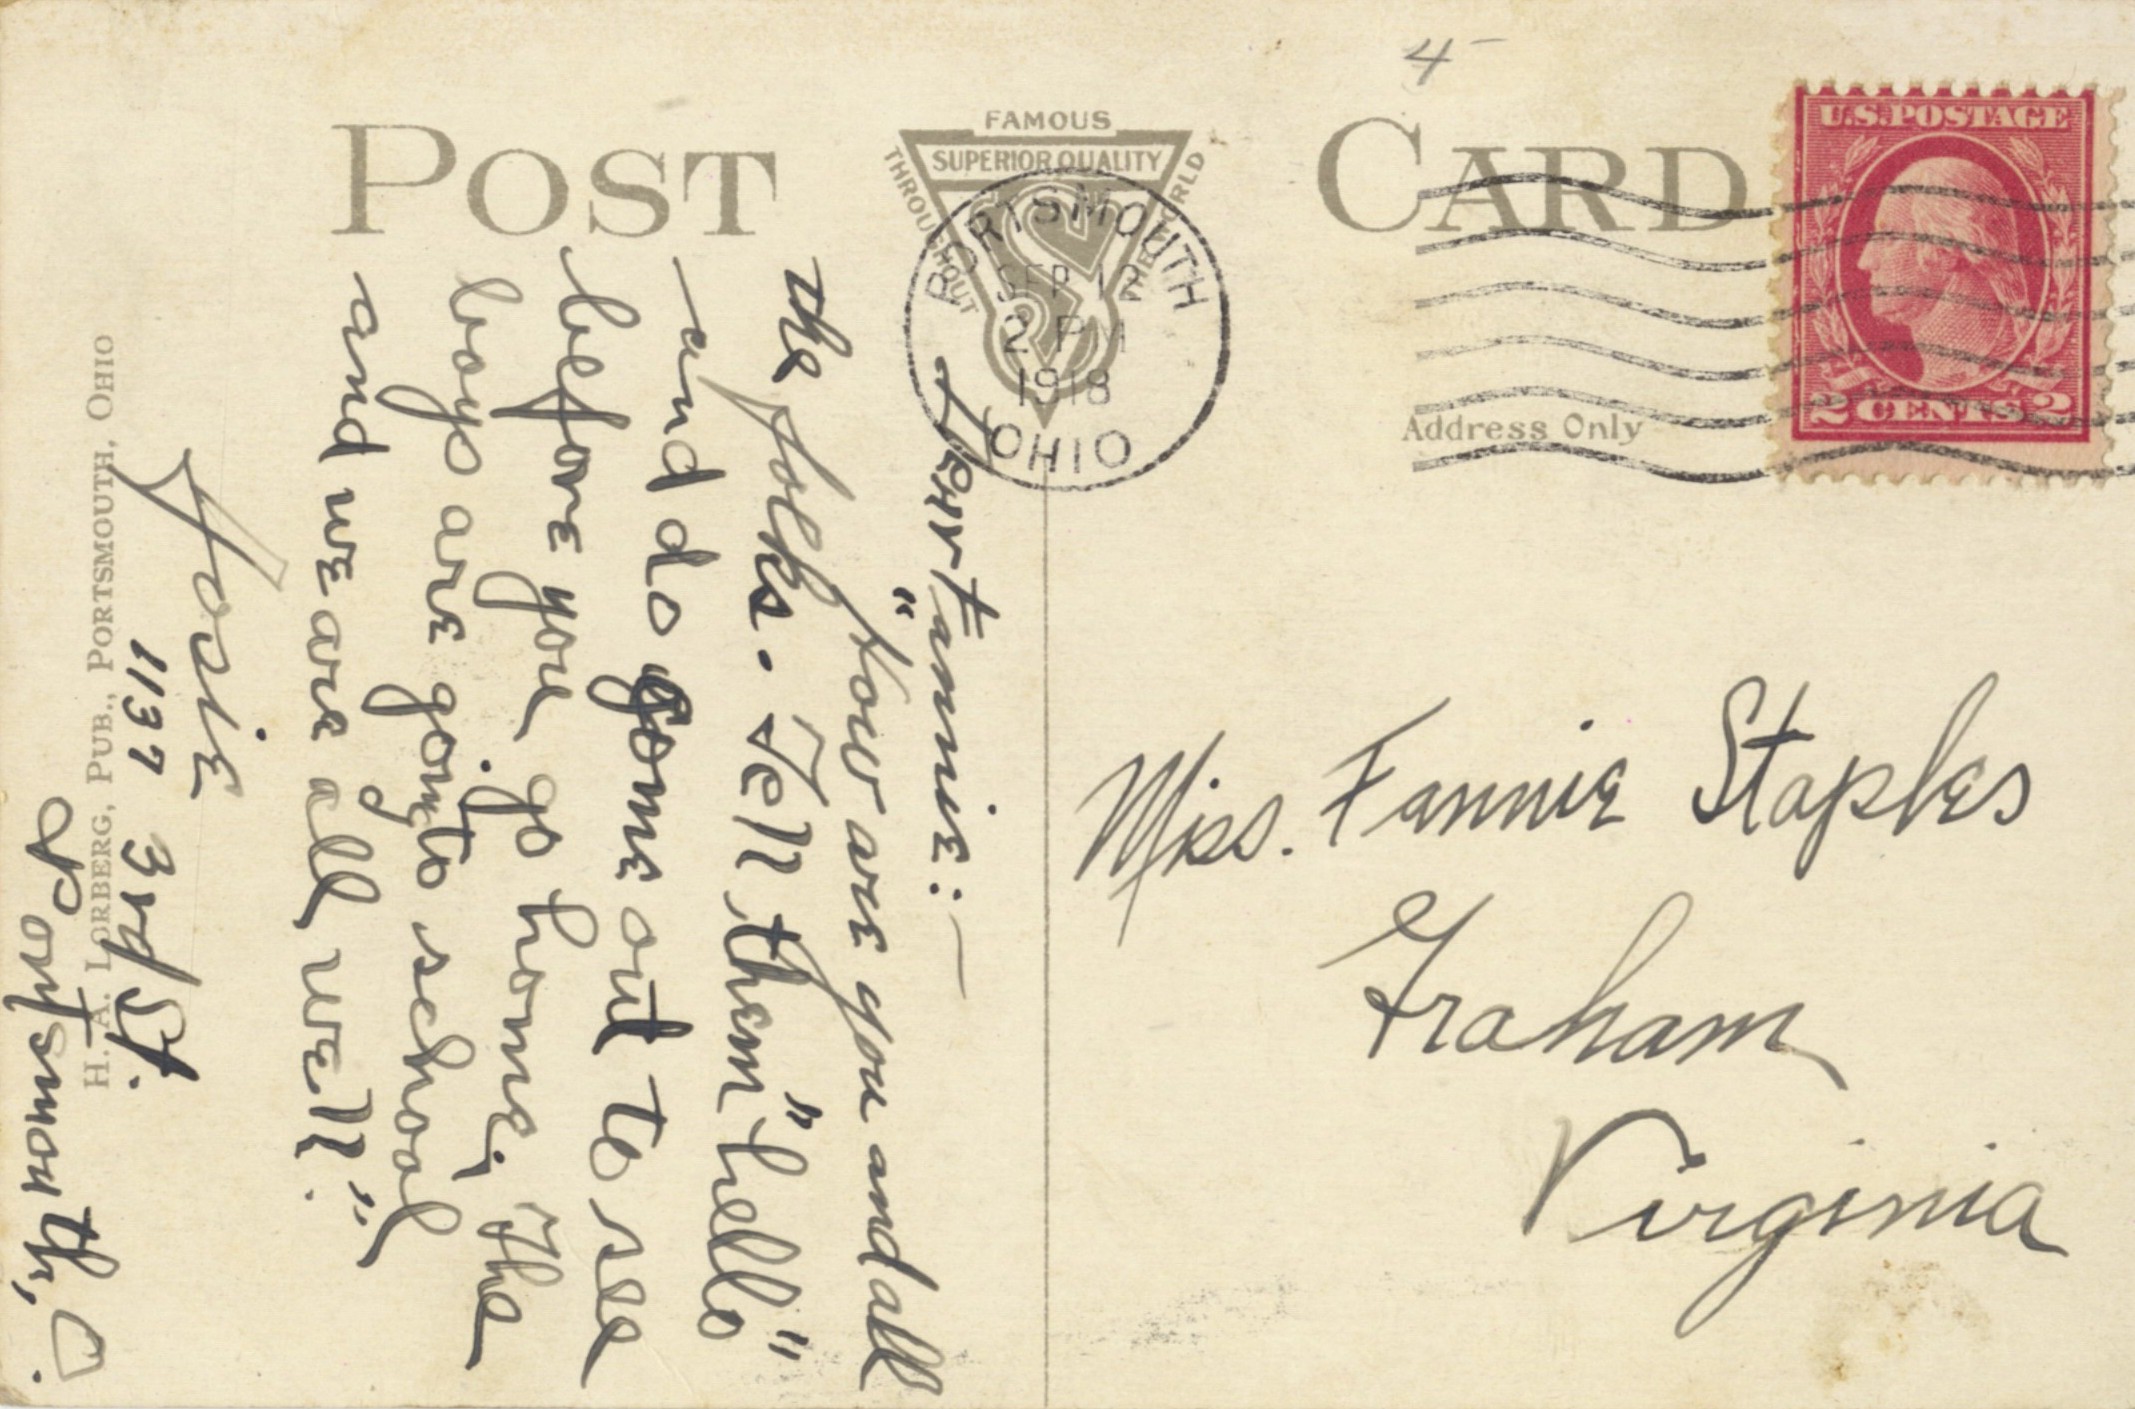 4-
POST CARD
FAMOUS
SUPERIOR QUALITY
THROUGHOUT
THE WORLD
PORTSMOUTH
SEP 12
2 PM
1918
OHIO
U.S. POSTAGE
2 CENTS 2
Address Only
Miss. Fannie Staples
Graham
Virginia
Dear Fannie:—
"How are you and all
the folks. Tell them "hello"
and do come out to see
before you go home. The
boys are going to school
and we are all well".
Josie
1137 3rd St.
Portsmouth, O.
H. A. LORBERG, PUB., PORTSMOUTH, OHIO